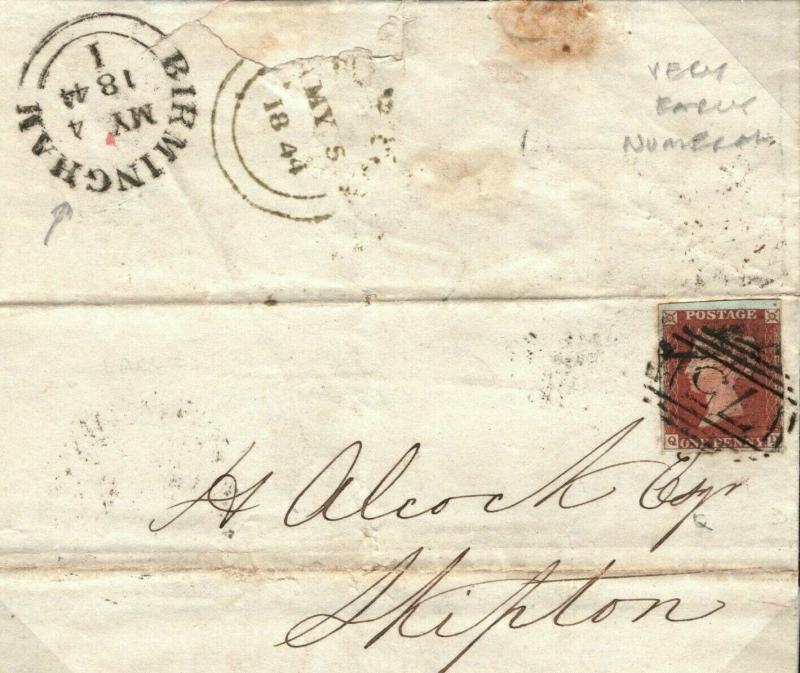 BIRMINGHAM
MY 4
1844
1
MY 5
1844
VERY
EARLY
NUMERAL
POSTAGE
75
Q
ONE PENNY
H Alcock Esqr
Skipton